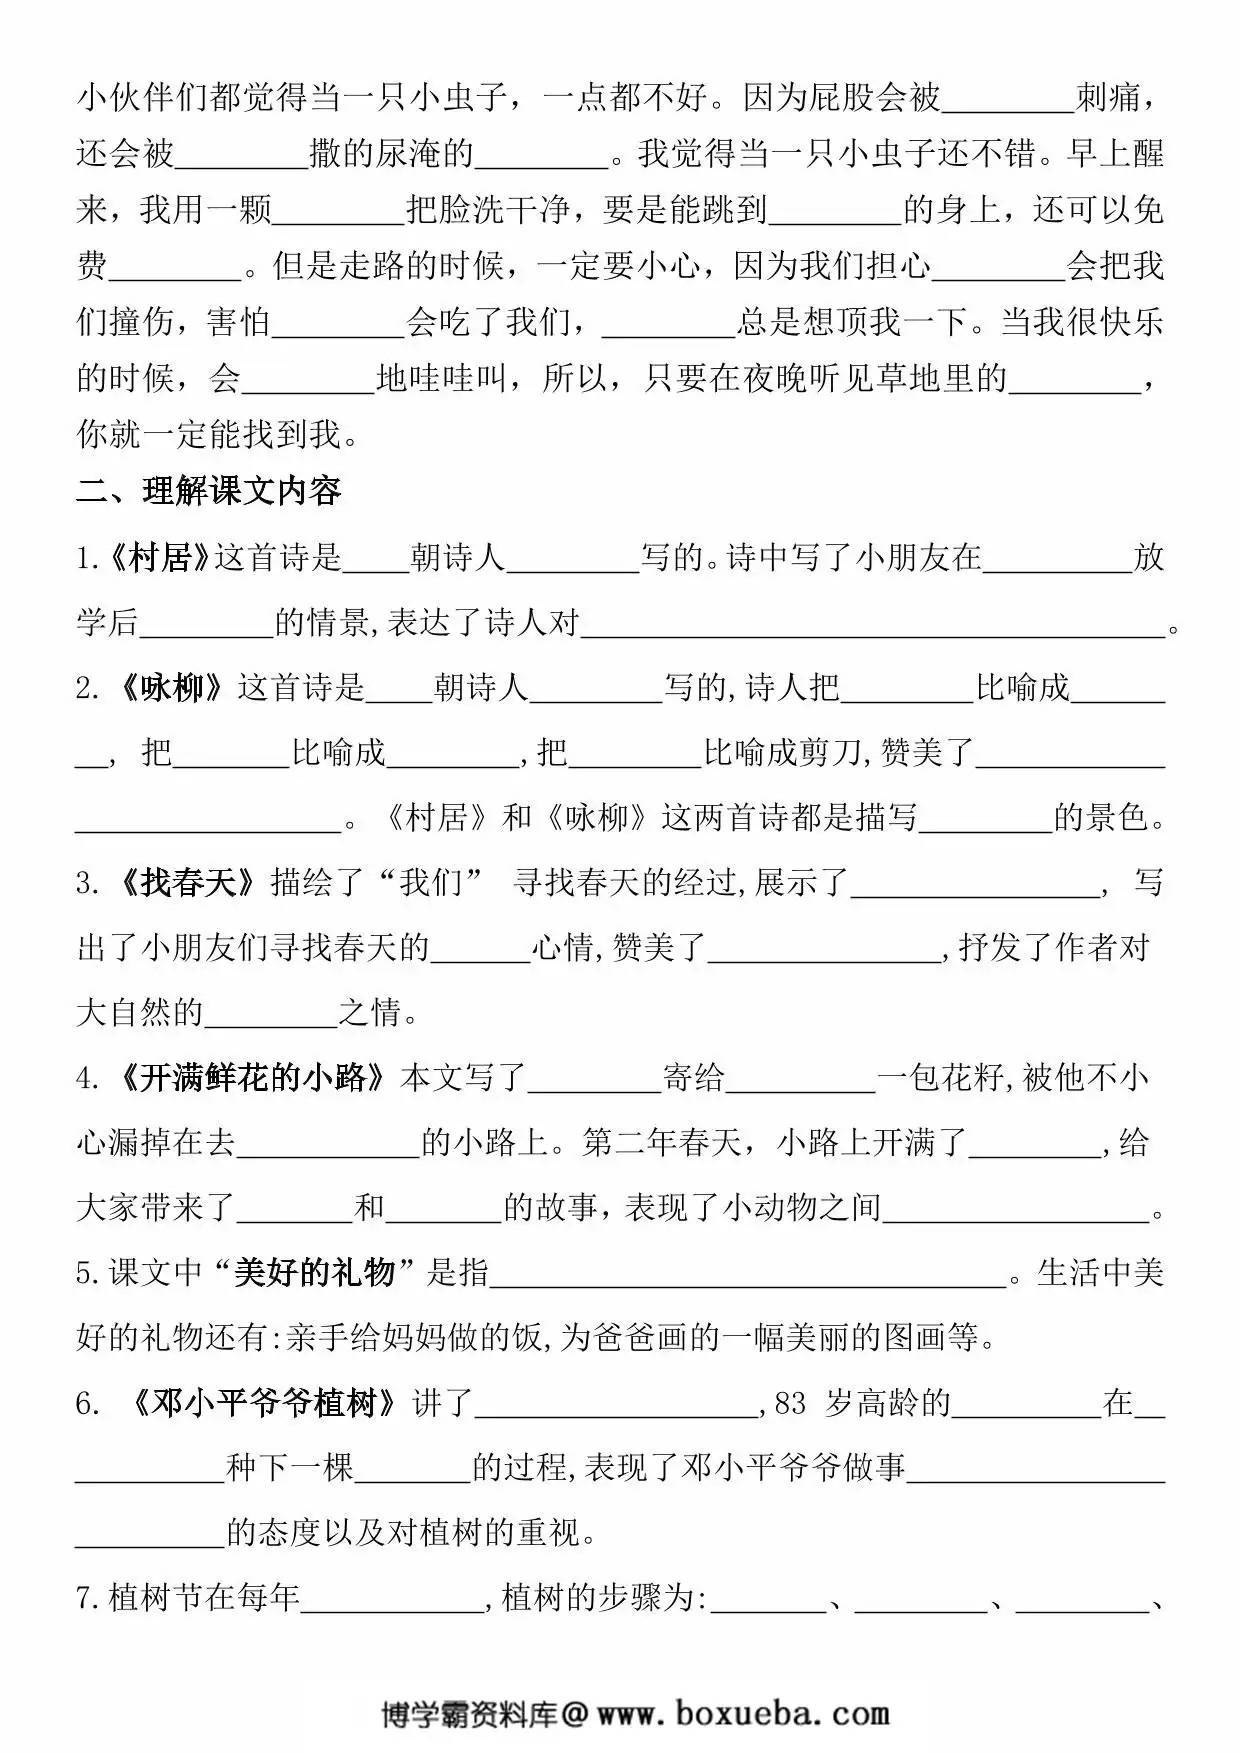 小伙伴们都觉得当一只小虫子，一点都不好。因为屁股会被________刺痛，
还会被________撒的尿淹的________。我觉得当一只小虫子还不错。早上醒
来，我用一颗________把脸洗干净，要是能跳到________的身上，还可以免
费________。但是走路的时候，一定要小心，因为我们担心________会把我
们撞伤，害怕________会吃了我们，________总是想顶我一下。当我很快乐
的时候，会________地哇哇叫，所以，只要在夜晚听见草地里的________，
你就一定能找到我。
二、理解课文内容
1.《村居》这首诗是____朝诗人________写的。诗中写了小朋友在_________放
学后________的情景,表达了诗人对___________________________________。
2.《咏柳》这首诗是____朝诗人________写的,诗人把________比喻成______
__, 把_______比喻成________,把________比喻成剪刀,赞美了____________
________________。《村居》和《咏柳》这两首诗都是描写________的景色。
3.《找春天》描绘了“我们” 寻找春天的经过,展示了_______________, 写
出了小朋友们寻找春天的______心情,赞美了______________,抒发了作者对
大自然的________之情。
4.《开满鲜花的小路》本文写了________寄给_________一包花籽,被他不小
心漏掉在去___________的小路上。第二年春天，小路上开满了________,给
大家带来了_______和_______的故事，表现了小动物之间________________。
5.课文中“美好的礼物”是指_______________________________。生活中美
好的礼物还有:亲手给妈妈做的饭,为爸爸画的一幅美丽的图画等。
6. 《邓小平爷爷植树》讲了_________________,83 岁高龄的_________在__
_________种下一棵_______的过程,表现了邓小平爷爷做事________________
_________的态度以及对植树的重视。
7.植树节在每年___________,植树的步骤为:_______、________、________、
博学霸资料库@www.boxueba.com